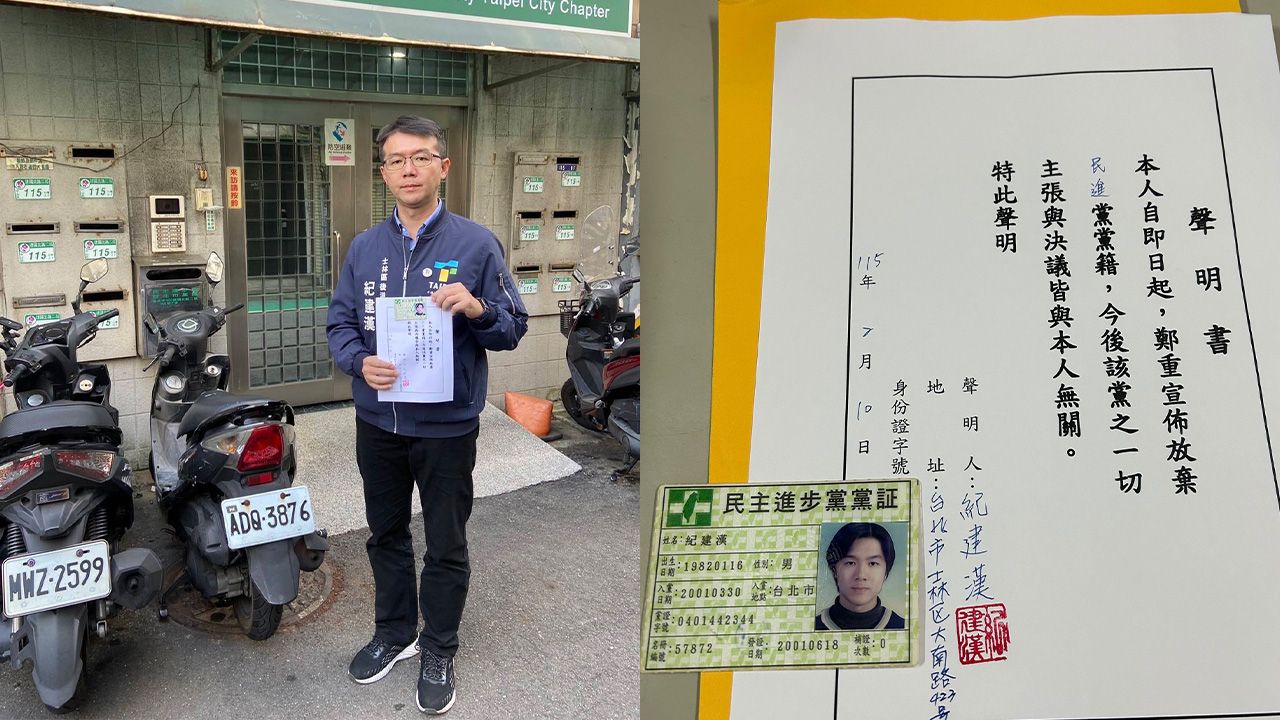 Taipei City Chapter
防空避難
來訪請按鈴
115
115
115
115
115
115
115
115
115
士林區後港
紀建漢
聲明書
ADQ-3876
MWZ-2599
聲明書
本人自即日起，鄭重宣佈放棄
民進黨黨籍，今後該黨之一切
主張與決議皆與本人無關。
特此聲明
聲明人：紀建漢
地址：台北市士林区大南路423号
身份證字號
115年 2月 10日
紀建漢
民主進步黨黨証
姓名：紀建漢
出生日期：19820116 性別：男
入黨日期：20010330 入黨地點：台北市
黨證字號：0401442344
名冊編號：57872 發證日期：20010618 補證次數：0